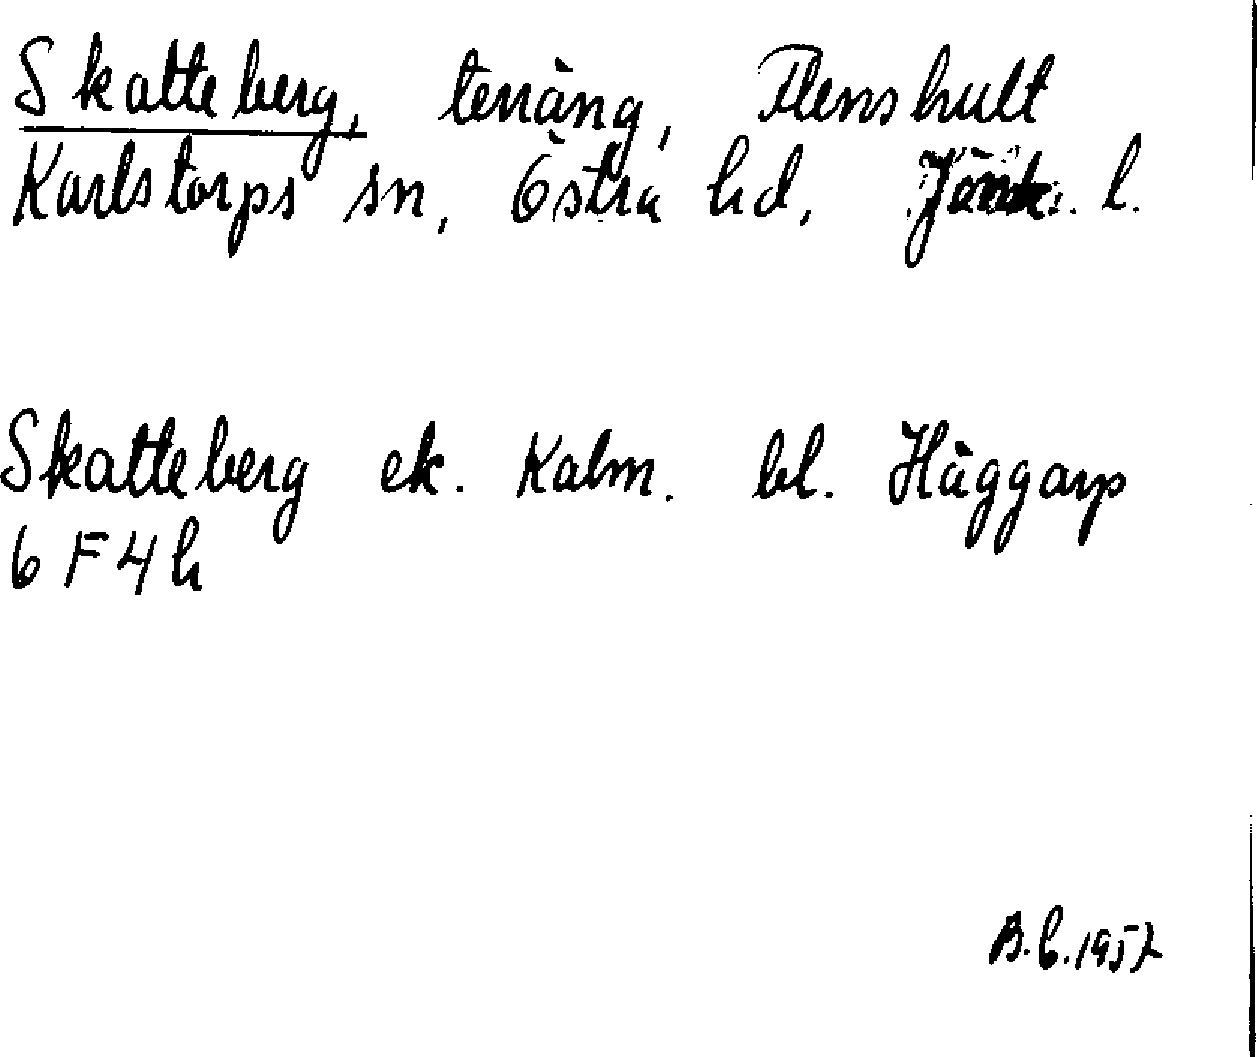 Skatteberg, terräng, Flenshult
Karlstorps sn, Östra hd, Jönk. l.
Skatteberg ek. Kalm. bl. Häggarp
6 F 4 h
B.b. 1957